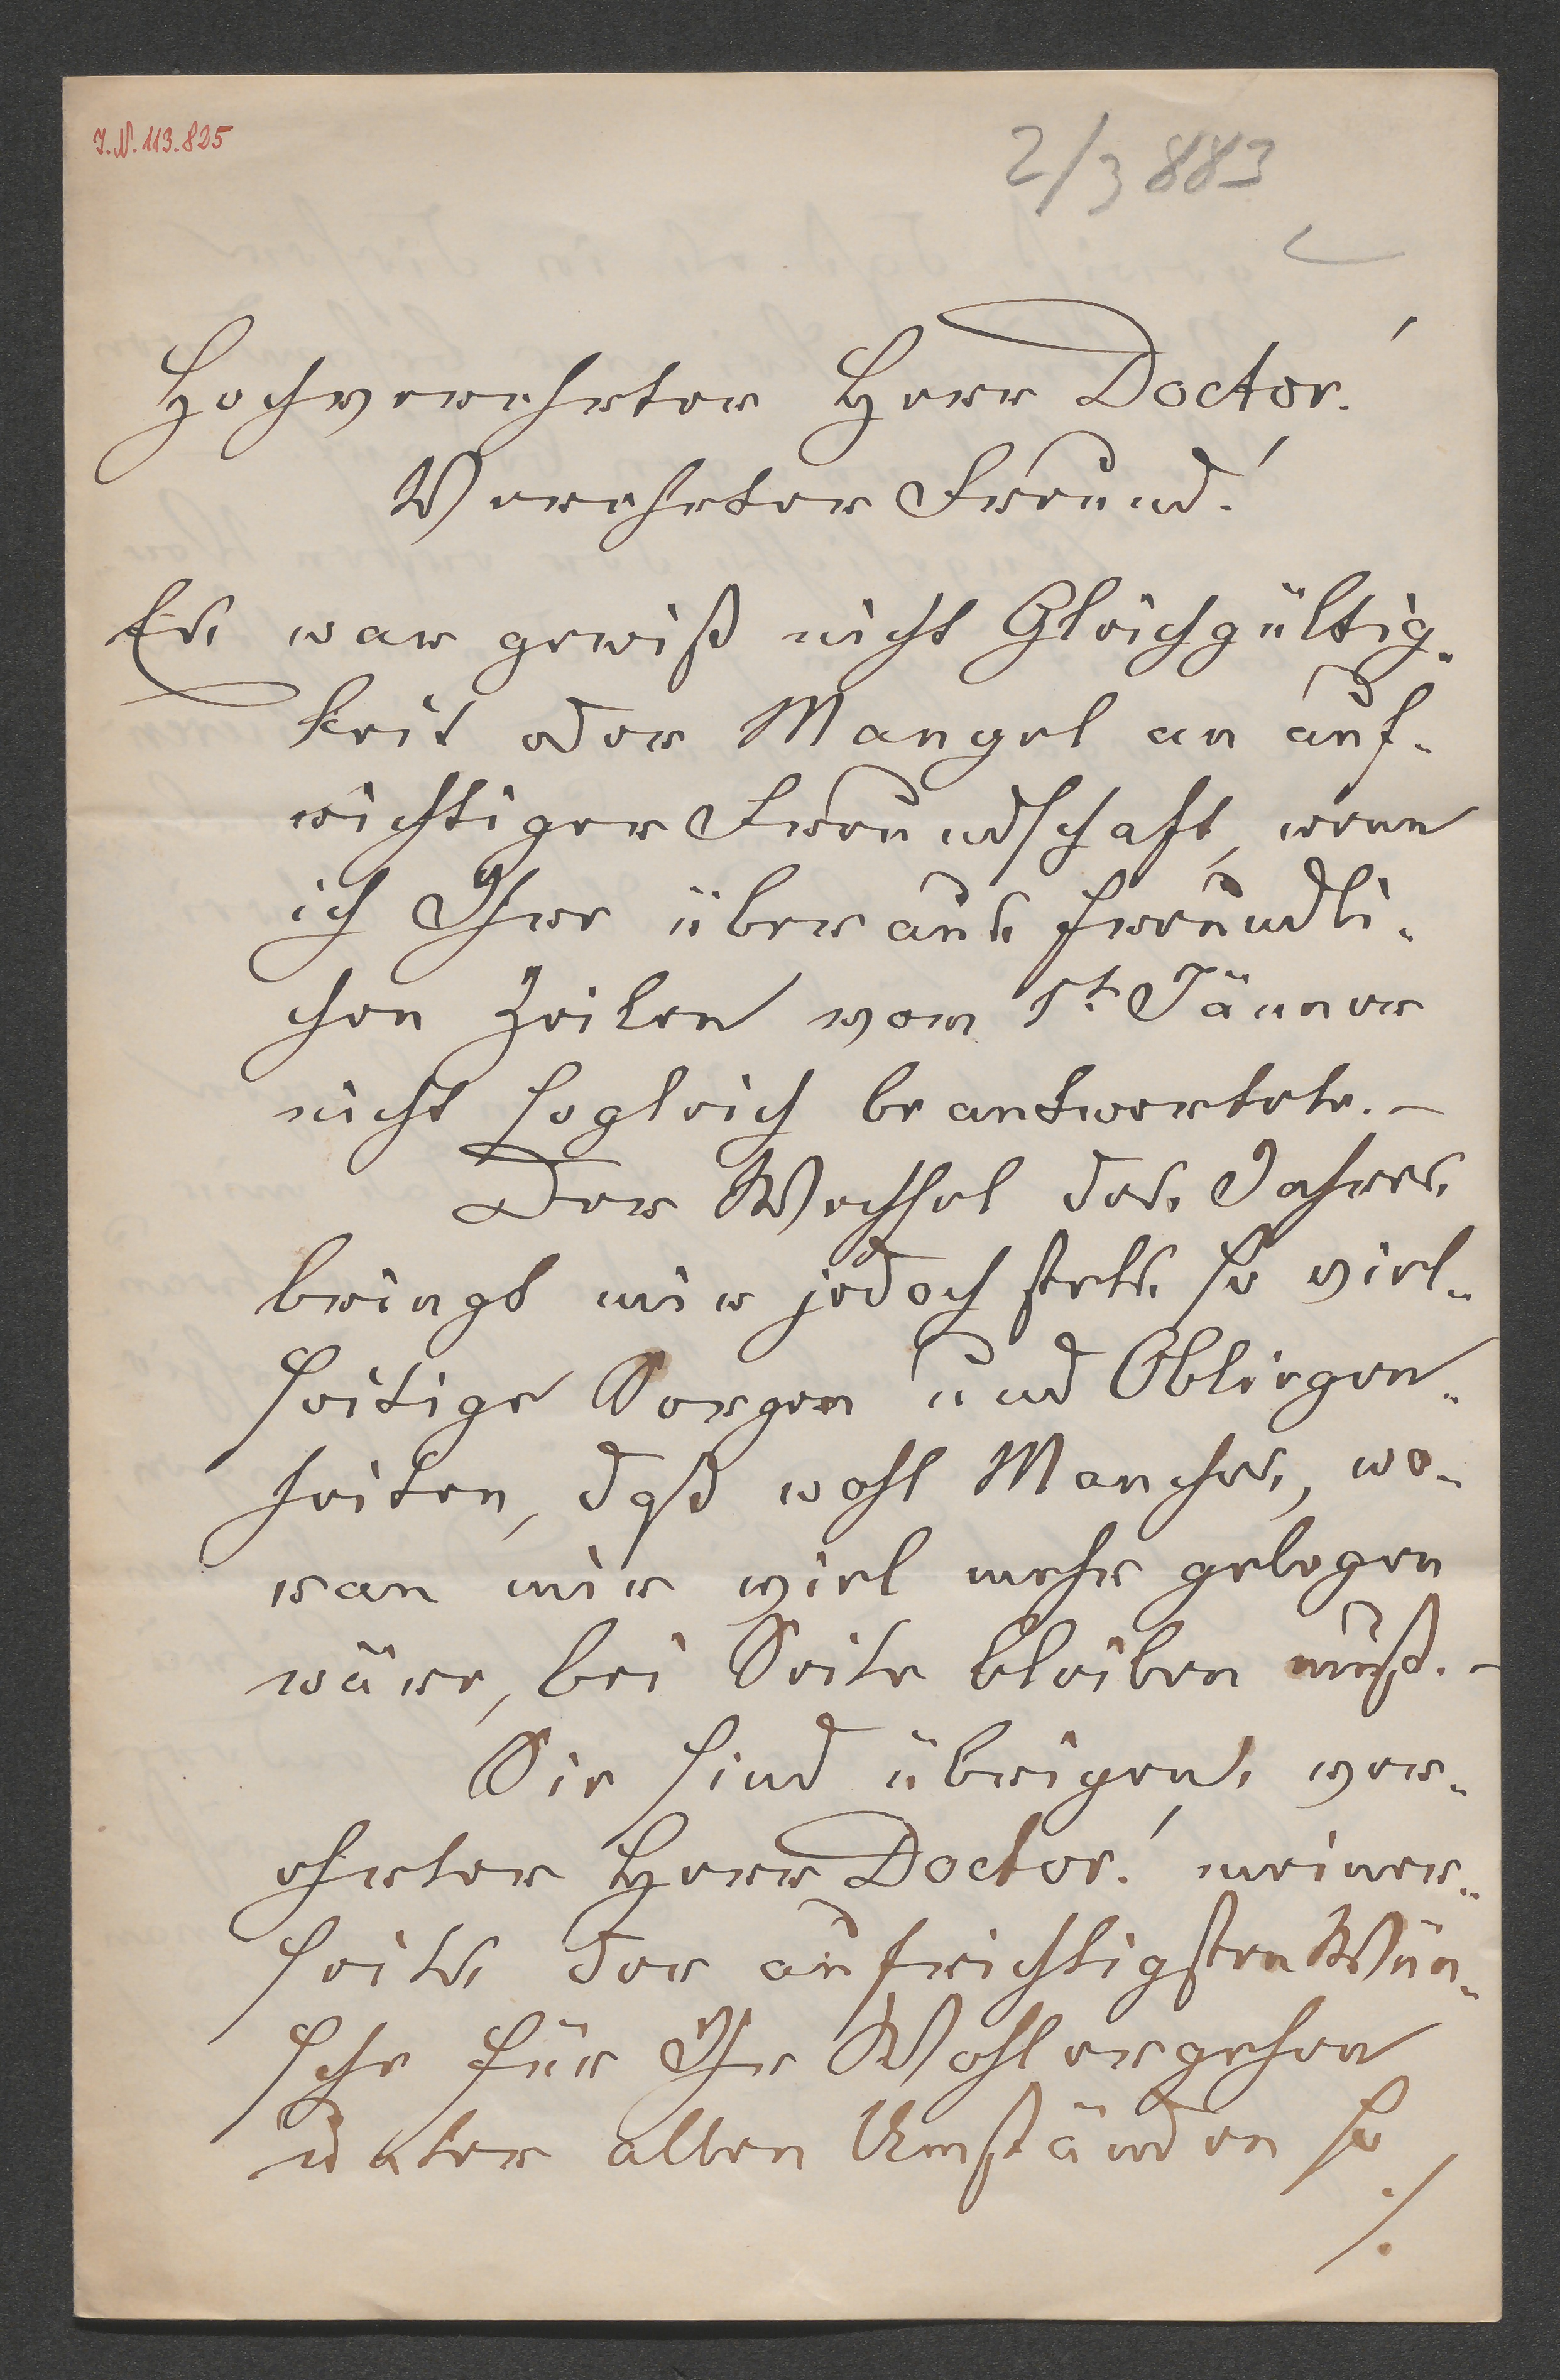 I.N. 113.825
2/3 883
Hochverehrter Herr Doctor!
Verehrter Freund!
Es war gewiß nicht Gleichgültig-
keit oder Mangel an auf-
richtiger Freundschaft, wenn
ich Ihre überaus freundli-
chen Zeilen vom 1t Jänner
nicht sogleich beantwortete. –
Der Wechsel des Jahres
bringt mir jedoch stets so viel-
seitige Sorgen und Obliegen-
heiten, daß wohl Manches, wo-
ran mir viel mehr gelegen
wäre, bei Seite bleiben muß. –
Sie sind übrigens ver-
ehrter Herr Doctor! meiner-
seits der aufrichtigsten Wün-
sche für Ihr Wohlergehen
unter allen Umständen so
./.